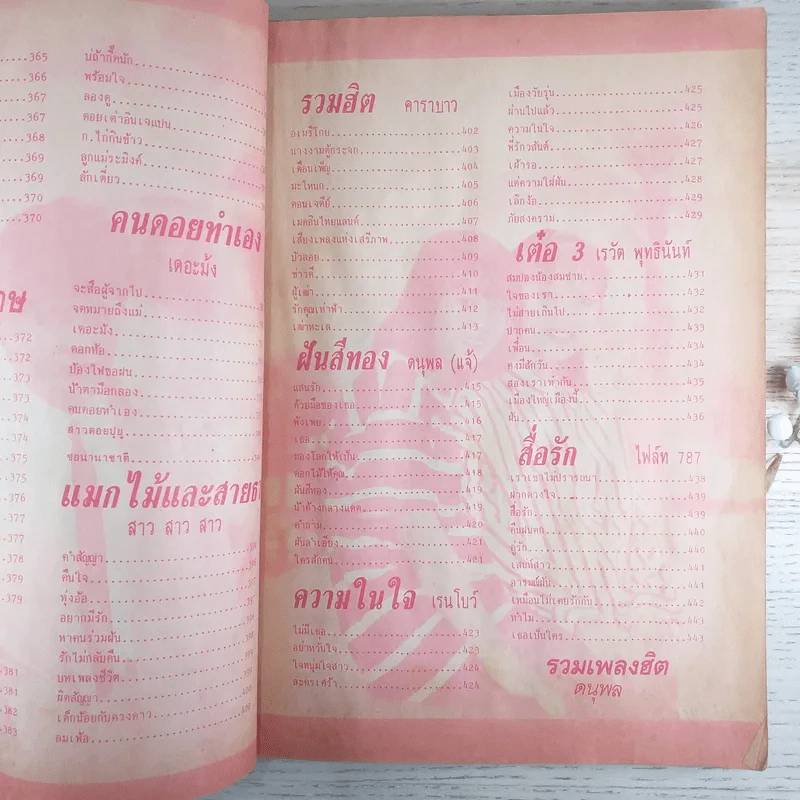 ...365
...366
...367
...367
...368
...369
...369
...370
...370
...372
372
373
373
374
374
375
376
377
377
378
379
379
381
381
382
383
พร้อมใจ
ลองดู
ดอยเต่าอินเจแปน
ก.ไก่กินข้าว
ลูกแม่ระมิงค์
ลักเตี่ยว
คนดอยทำเอง
เดอะม้ง
จะสื่อผู้จากไป
จดหมายถึงแม่
เดอะม้ง
ดอกท้อ
น้องไฟขอฝน
น้ำตามือกลอง
คนดอยทำเอง
สาวดอยปุย
ขอนานาชาติ
แมกไม้และสายธ
สาว สาว สาว
คำสัญญา
คืนใจ
ทุ่งอ้อ
อยากมีรัก
หาคนร่วมฝัน
รักไม่กลับคืน
บทเพลงชีวิต
ผิดสัญญา
เด็กน้อยกับดวงดาว
ลมเพ้อ
รวมฮิต คาราบาว
อเมริโกย...402
นางงามตู้กระจก...403
เดือนเพ็ญ...404
มะโหนก...405
ดอนเจดีย์...406
เมดอินไทยแลนด์...407
เสียงเพลงแห่งเสรีภาพ...408
บัวลอย...409
ชาวดี...410
ผู้เฒ่า...411
รักคุณเท่าฟ้า...412
เฒ่าทะเล...413
ฝันสีทอง ดนุพล (แจ้)
แสนรัก...415
ด้วยมือของเธอ...415
พังเพย...416
เธอ...417
มองโลกให้เป็น...417
ดอกไม้ให้คุณ...418
ฝันสีทอง...419
น้ำค้างกลางแดด...420
คำถาม...420
ฝันลำเอียง...421
ใครสักคน...421
ความในใจ เรนโบว์
ไม่มีเธอ...423
อย่าหวั่นใจ...423
ใจหนุ่มใจสาว...424
ละครเศร้า...424
เมืองวัยรุ่น...425
ผ่านไปแล้ว...425
ความในใจ...426
พี่รักวสันต์...427
เฝ้ารอ...427
แด่ความใฝ่ฝัน...428
เลิกง้อ...429
ภัยสงคราม...429
เต๋อ 3 เรวัต พุทธินันท์
สมปองน้องสมชาย...431
ใจของเรา...431
ไม่สายเกินไป...432
ยากคน...433
เพื่อน...434
คงมีสักวัน...434
สองเราเท่ากัน...435
เมืองใหญ่เมืองนี้...435
ฝัน...436
สื่อรัก ไฟล์ท 787
เราเขาไม่ปรารถนา...438
ฝากดวงใจ...439
สื่อรัก...439
คืนฝนตก...440
คู่รัก...440
เสน่ห์สาว...441
อารมณ์ฝัน...441
เหมือนไม่เคยรักกัน...442
ทำไม...443
เธอเป็นใคร...443
รวมเพลงฮิต
ดนุพล